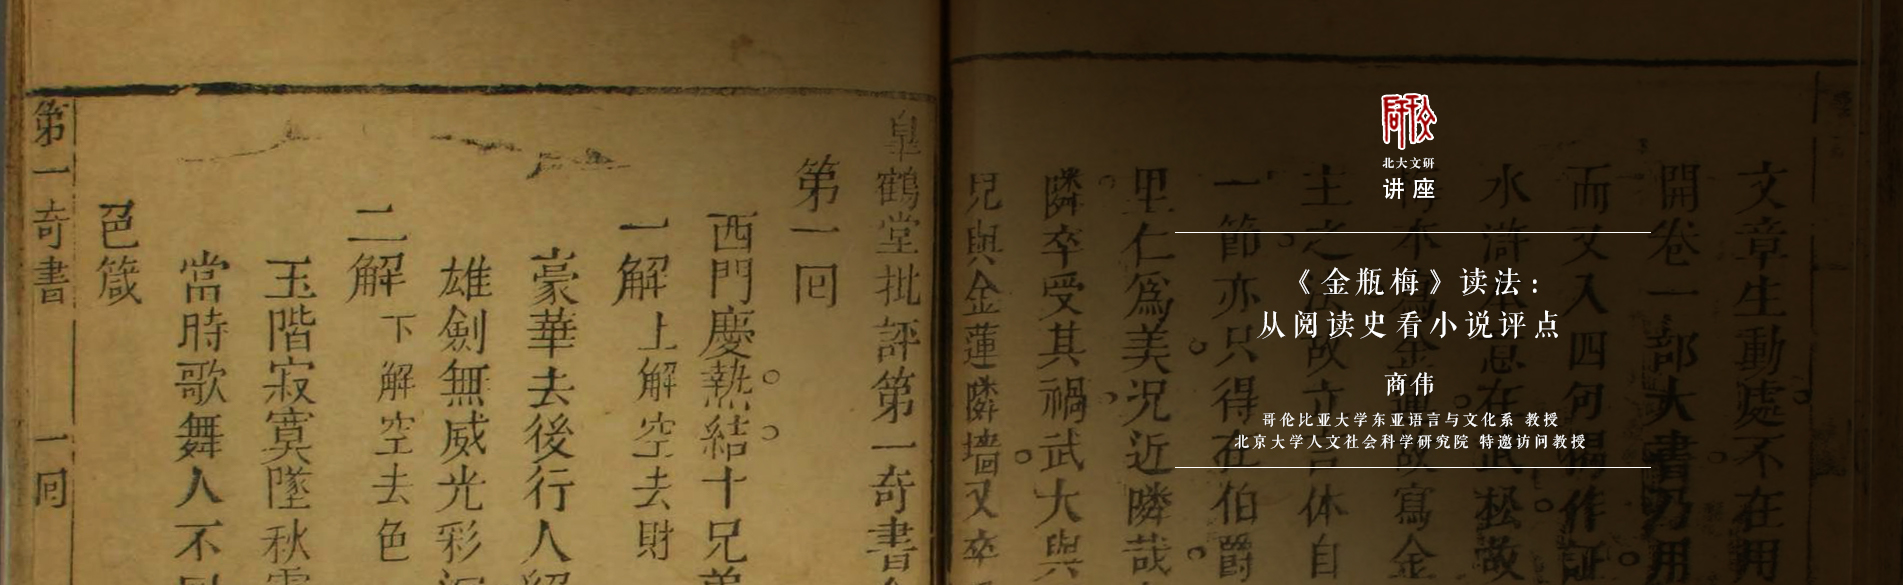 北大文研
讲座
《金瓶梅》读法：
从阅读史看小说评点
商伟
哥伦比亚大学东亚语言与文化系 教授
北京大学人文社会科学研究院 特邀访问教授
文章生動處不在用
開卷一部大書乃用
而又入四句作証
水滸意在武松故
不寫金故寫金
主之故立言体自
一節亦只得在伯爵
里仁爲美况近隣哉
隣卒受其禍武大與
兒與金蓮隣墻又卒
臯鶴堂批評第一奇書
第一回
西門慶熱結十兄弟
一解 上解空去財
豪華去後行人
雄劍無威光彩
二解 下解空去色
玉階寂寞墜秋
當時歌舞人不
色箴
第一奇書 一回